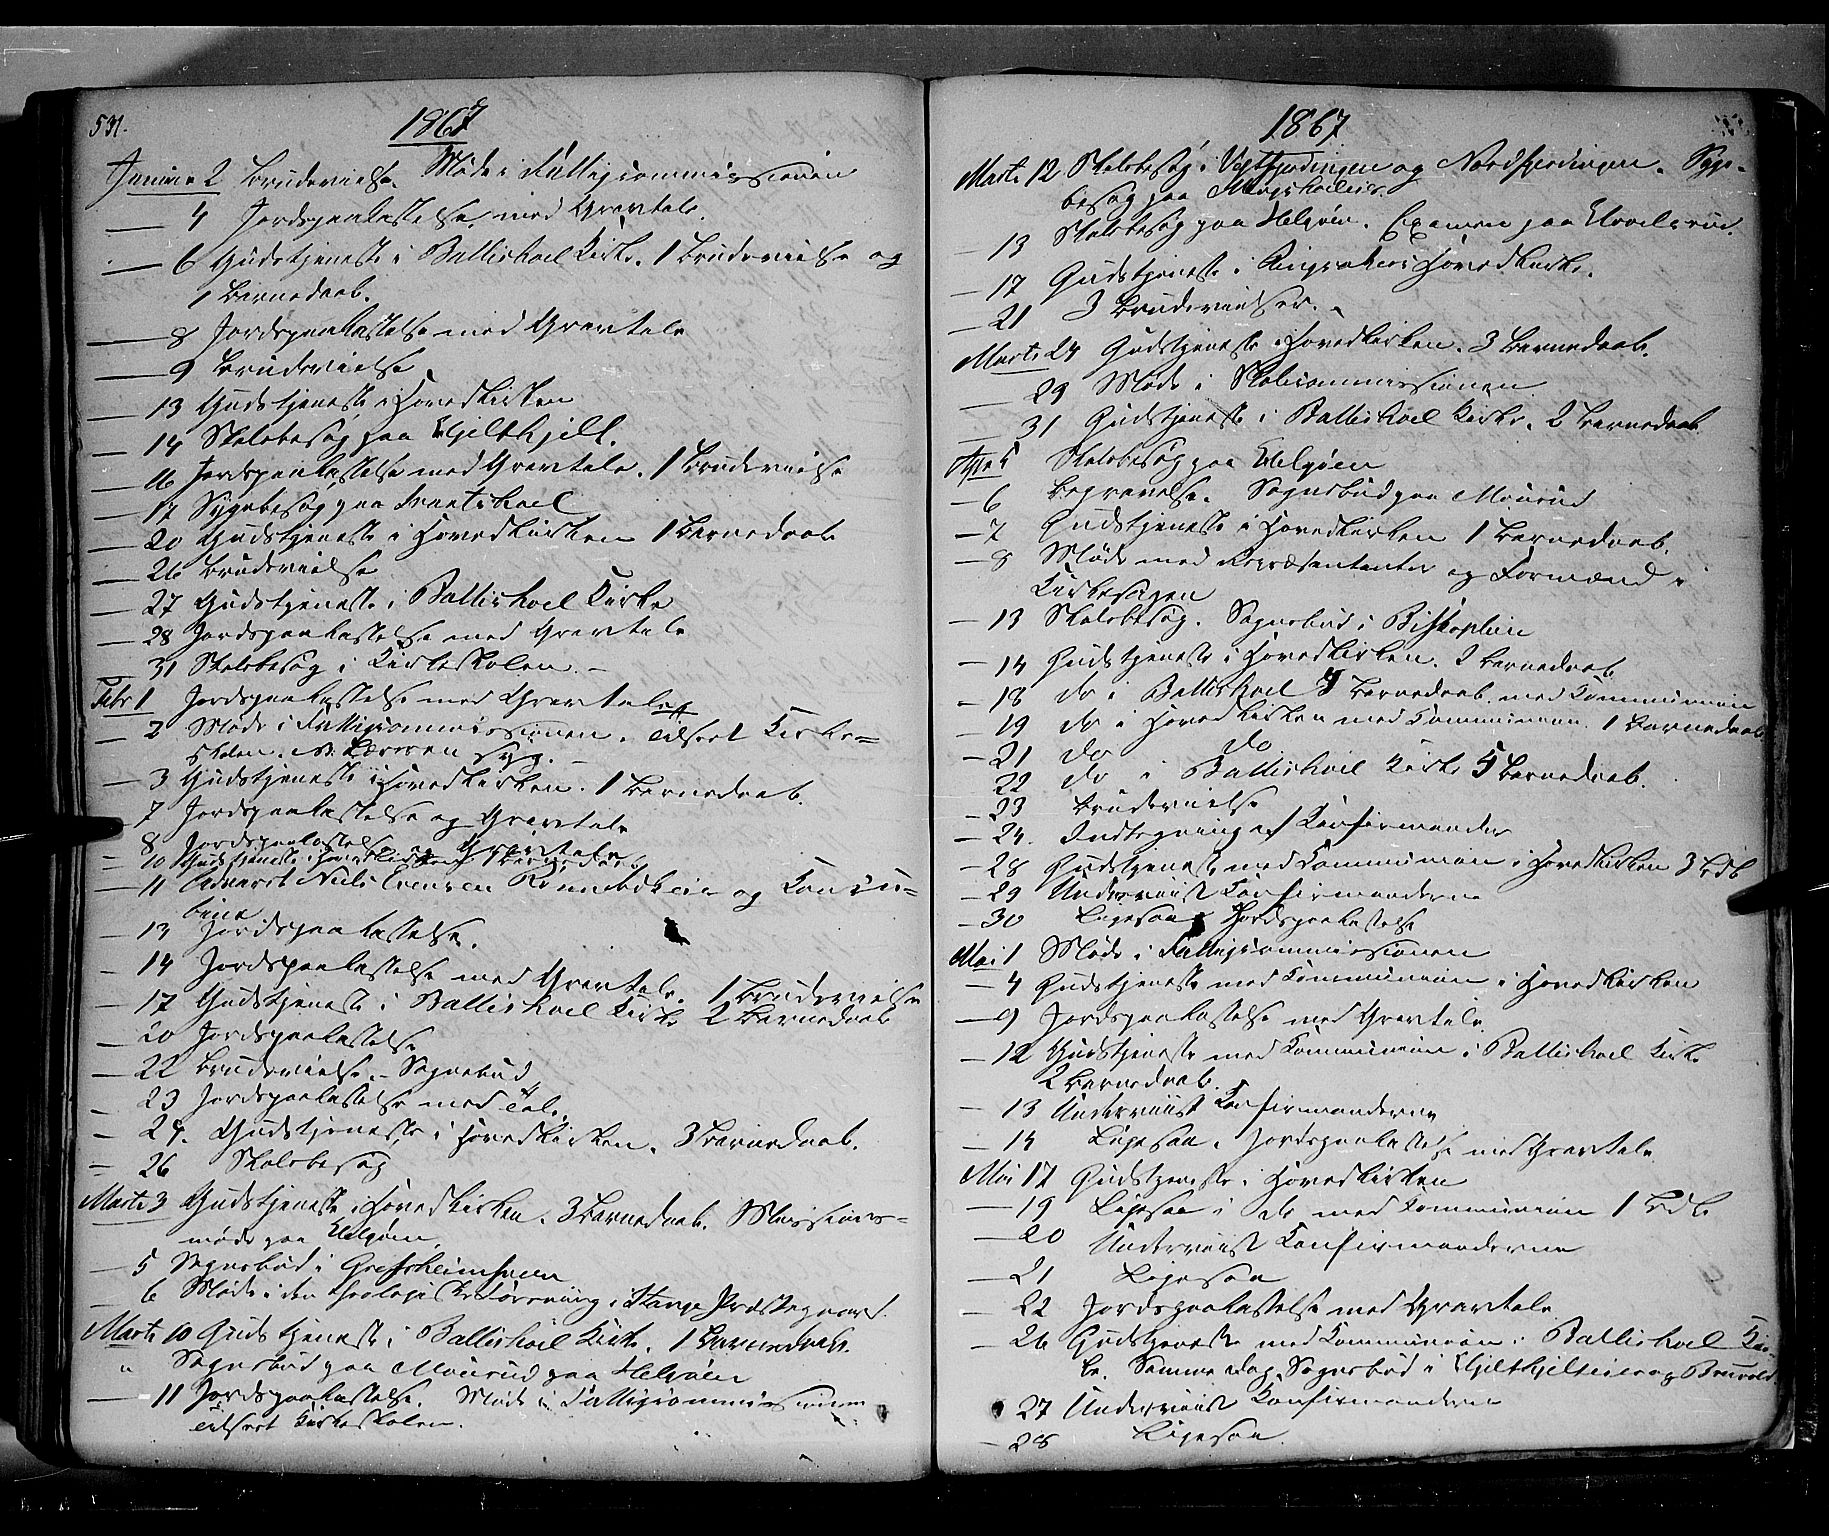 531.
1867
Januar 2 Brudevielse. Møde i Fattigcommissionen
— 4 Jordspaakastelse med Gravtale.
— 6 Gudstjeneste i Ballishoel Kirke. 1 Brudevielse og
1 Barnedaab.
— 8 Jordspaakastelse med Gravtale
— 9 Brudevielse
— 13 Gudstjeneste i Hovedkirken
— 14 Skolebesøg paa Hjelthjell.
— 16 Jordspaakastelse med Gravtale. 1 Brudevielse
— 17 Sygebesøg paa
— 20 Gudstjeneste i Hovedkirken 1 Barnedaab
— 26 Brudevielse
— 27 Gudstjeneste i Ballishoel Kirke
— 28 Jordspaakastelse med Gravtale
— 31 Skolebesøg i Kirkeskolen. –
Febr 1 Jordspaakastelse med Gravtale
— 2 Møde i Fattigcommissionen. Tilseet Kirke=
skolen. Læreren syg. –
— 3 Gudstjeneste i Hovedkirken. 1 Barnedaab.
7 Jordspaakastelse og Gravtale
— 8 Jordspaakastelse og Gravtale
— 10 Gudstjeneste i Hovedkirken 1 Barnedaab
— 11 Advaret Niels Evensen og Concu=
bine
— 13 Jordspaakastelse.
— 14 Jordspaakastelse med Gravtale. 1 Brudevielse
— 17 Gudstjeneste i Ballishoel Kirke 2 Barnedaab
— 20 Jordspaakastelse
— 22 Brudevielse. – Sognebud
— 23 Jordspaakastelse med Tale.
— 24. Gudstjeneste i Hovedkirken. 3 Barnedaab.
— 26 Skolebesøg
Marts 3 Gudstjeneste i Hovedkirken. 3 Barnedaab. Missions=
møde paa Helgøen
— 5 Sognebud i Grefsheim
— 6 Møde i den theologiske Forening i Stange Præstegaard.
Marts 10 Gudstjeneste i Ballishoel Kirke. 1 Barnedaab.
" Sognebud paa Mousud paa Helgøen
— 11 Jordspaakastelse. Møde i Fattigcommissionen
Tilseet Kirkeskolen.
1867
Marts 12 Skolebesøg i Vestfjerdingen og Nordfjerdingen. Syge-
besøg paa
— 13 Skolebesøg paa Helgøen. Examen paa Hovelsrud.
— 17 Gudstjeneste i Ringsakers Hovedkirke.
— 21 3 Brudevielser.
Marts 24 Gudstjeneste i Hovedkirken. 3 Barnedaab.
— 29 Møde i Skolecommissionen
— 31 Gudstjeneste i Ballishoel Kirke. 2 Barnedaab
Apr 5 Skolebesøg paa Helgøen
— 6 Begravelse. Sognebud paa Mousud
— 7 Gudstjeneste i Hovedkirken 1 Barnedaab.
— 8 Møde med Repræsentanter og Formænd i
Kirkesagen
— 13 Skolebesøg. Sognebud i Biskoplien
— 14 Gudstjeneste i Hovedkirken. 2 Barnedaab
— 18 do i Ballishoel 3 Barnedaab med Communion
— 19 do i Hovedkirken med Communion. 1 Barnedaab
— 21 do do
22 do i Ballishoel Kirke 5 Barnedaab.
— 23 Brudevielse
— 24. Indtegning af Confirmander
— 28 Gudstjeneste med Communion i Hovedkirken 3 Bdb
— 29 Underviist Confirmanderne
— 30 Ligesaa Jordspaakastelse
Mai 1 Møde i Fattigcommissionen
— 4 Gudstjeneste med Communion i Hovedkirken
— 9 Jordspaakastelse med Gravtale.
— 12 Gudstjeneste med Communion i Ballishoel Kirke
2 Barnedaab.
— 13 Underviist Confirmanderne
— 14 Ligesaa. Jordspaakastelse med Gravtale
Mai 17 Gudstjeneste i Hovedkirken
— 19 Ligesaa i do med Communion 1 Bdb
— 20 Underviist Confirmanderne
— 21 Ligesaa
— 22 Jordspaakastelse med Gravtale
— 26 Gudstjeneste med Communion i Ballishoel Kir-
ke. Samme Dag Sognebud i Hjelthjelleier og Bruvold
27 Underviist Confirmanderne
— 28 Ligesaa.